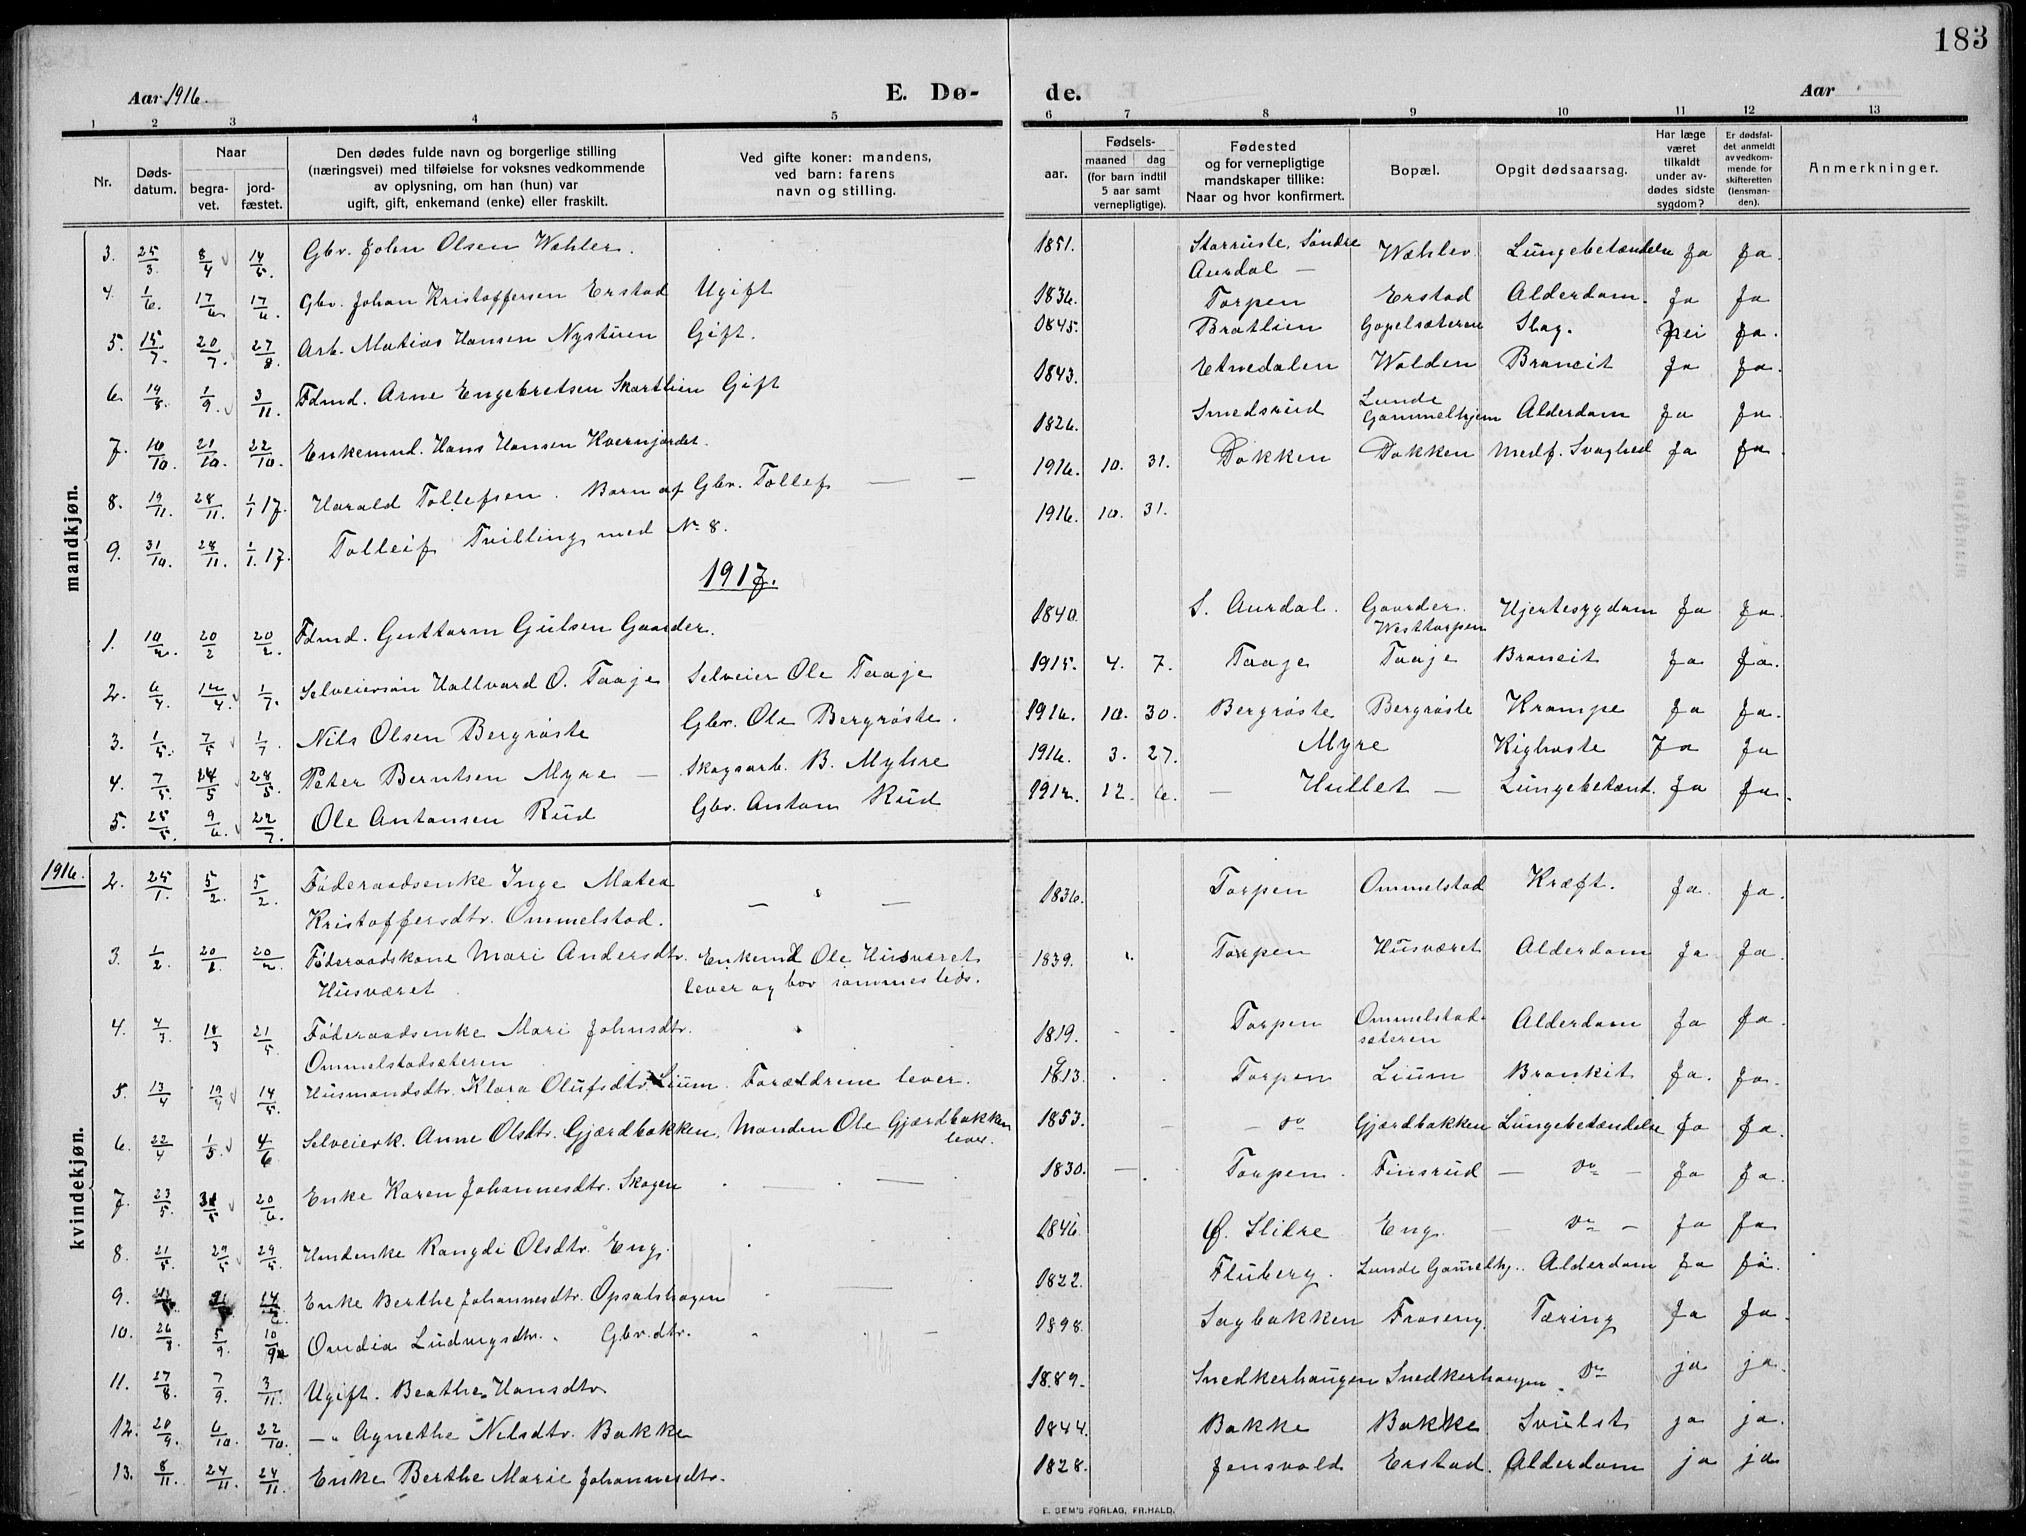 183
Aar 1916.
E. Dø-
de.
Aar
1 2 3 4 5 6 7 8 9 10 11 12 13
Nr.
Døds-
datum.
Naar
begra-
vet.
jord-
fæstet.
Den dødes fulde navn og borgerlige stilling
(næringsvei) med tilføielse for voksnes vedkommende
av oplysning, om han (hun) var
ugift, gift, enkemand (enke) eller fraskilt.
Ved gifte koner: mandens,
ved barn: farens
navn og stilling.
Fødsels-
aar.
maaned dag
(for barn indtil
5 aar samt
vernepligtige).
Fødested
og for vernepligtige
mandskaper tillike:
Naar og hvor konfirmert.
Bopæl.
Opgit dødsaarsag.
Har læge
været
tilkaldt
under av-
dødes sidste
sygdom?
Er dødsfal-
det anmeldt
av vedkom-
mende for
skifteretten
(lensman-
den).
Anmerkninger.
mandkjøn.
3. 25/3. 8/4 14/5 Gbr. John Olsen Wæhler. 1851. Storruste, Søndre Aurdal — Wæhler Lungebetændelse Ja Ja.
4. 1/6. 17/6 17/6 Gbr. Johan Kristoffersen Erstad Ugift 1836. Torpen Erstad Alderdom. Ja Ja
5. 15/7. 20/7. 27/8. Arb. Matias Hansen Nystuen Gift. 1845. Bratlien Gopelsæteren Slag. Nei Ja.
6. 19/8. 1/9. 3/11. Fdmd. Arne Engebretsen Skartlien Gift 1843. Etnedalen Wolden Broncit Ja Ja.
7. 10/10. 21/10. 22/10. Enkemnd. Hans Hansen Kvernjordet. 1826. Smedsrud Lunde Gammelhjem Alderdom Ja Ja.
8. 19/11. 28/11. 1/1 17. Harald Tollefsen. Barn af Gbr. Tollef — — 1916. 10. 31. Dokken Dokken Medf. Svaghed Ja Ja.
9. 31/10. 28/11. 1/1. 17. Tolleif Tvilling med Nr 8. 1916. 10. 31.
1917.
1. 10/2. 20/2 20/2. Fdmd. Guttorm Gulsen Gaarder. 1840. S. Aurdal. Gaarder. Westtorpen Hjertesygdom Ja Ja.
2. 6/4. 12/4. 1/7. Selveiersøn Hallvard O. Taaje Selveier Ole Taaje 1915. 4. 7. Taaje Taaje Broncit Ja Ja.
3. 1/5. 7/5 1/7. Nils Olsen Bergrøste Gbr. Ole Bergrøste. 1916. 10. 30. Bergrøste Bergrøste Krampe Ja Ja.
4. 7/5. 14/5 28/5. Peter Berntsen Myre — Skogsarb. B. Myhre 1916. 3. 27. Myre Kighoste Ja Ja
5. 25/5. 9/6. 22/7. Ole Antonsen Rud Gbr. Anton Rud 1912. 12. 6. — Hullet — Lungebetænd. Ja Ja.
kvindekjøn.
1916. 2. 25/1. 5/2. 5/2. Føderaadsenke Inge Matea
Kristoffersdtr. Ommelstad. — — 1836. Torpen Ommelstad Kræft. Ja. Ja.
3. 1/2. 20/2 20/2 Føderaadskone Mari Andersdtr. Enkemnd Ole Husværet 1839. Torpen Husværet Alderdom Ja. Ja.
Husværet lever og bor sammesteds.
4. 4/3. 18/3 21/5. Føderaadsenke Mari Johnsdtr. 1819. Torpen Ommelstad- Alderdom Ja Ja.
Ommelstadsæteren sæteren
5. 13/4 19/4 14/5. Husmandsdtr. Klara Olufsdtr. Lium. Forældrene lever. 1913. Torpen Lium Bronkit Ja. Ja.
6. 22/4 1/5. 4/6 Selveierk. Anne Olsdtr. Gjærdbakken. Manden Ole Gjærdbakken lever. 1853. — do Gjærdbakken Lungebetændelse Ja Ja.
7. 23/5. 31/5 20/6. Enke Karen Johannesdtr. Skogen — — 1830. — Torpen. Finsrud — do — Ja Ja.
8. 21/5. 29/5. 29/5. Hmdenke Rangdi Olsdtr. Eng. 1846. Ø. Slidre Eng. — do — Ja Ja
9. Enke Berthe Johannesdtr. Opsalshagen 1822. Fluberg. Lunde Gamelhj. Alderdom Ja Ja.
10. 26/8 5/9. 10/9 Ovidia Ludvigsdtr. Gbr.dtr. — 1898. Sagbakken Froseng. Tæring Ja Ja.
11. 27/8. 7/9. 3/11. Ugift. Beathe Hansdtr 1889. Snedkerhaugen Snedkerhaugen. do ja ja.
12. 20/9. 6/10. 22/10. —"— Agnethe Nilsdtr. Bakke 1844. Bakke Bakke Svulst ja ja.
13. 8/11. 24/11. 24/11. Enke Berthe Marie Johannesdtr. 1828. Jensvold Erstad. Alderdom ja ja
E. SEM'S FORLAG, FR.HALD.